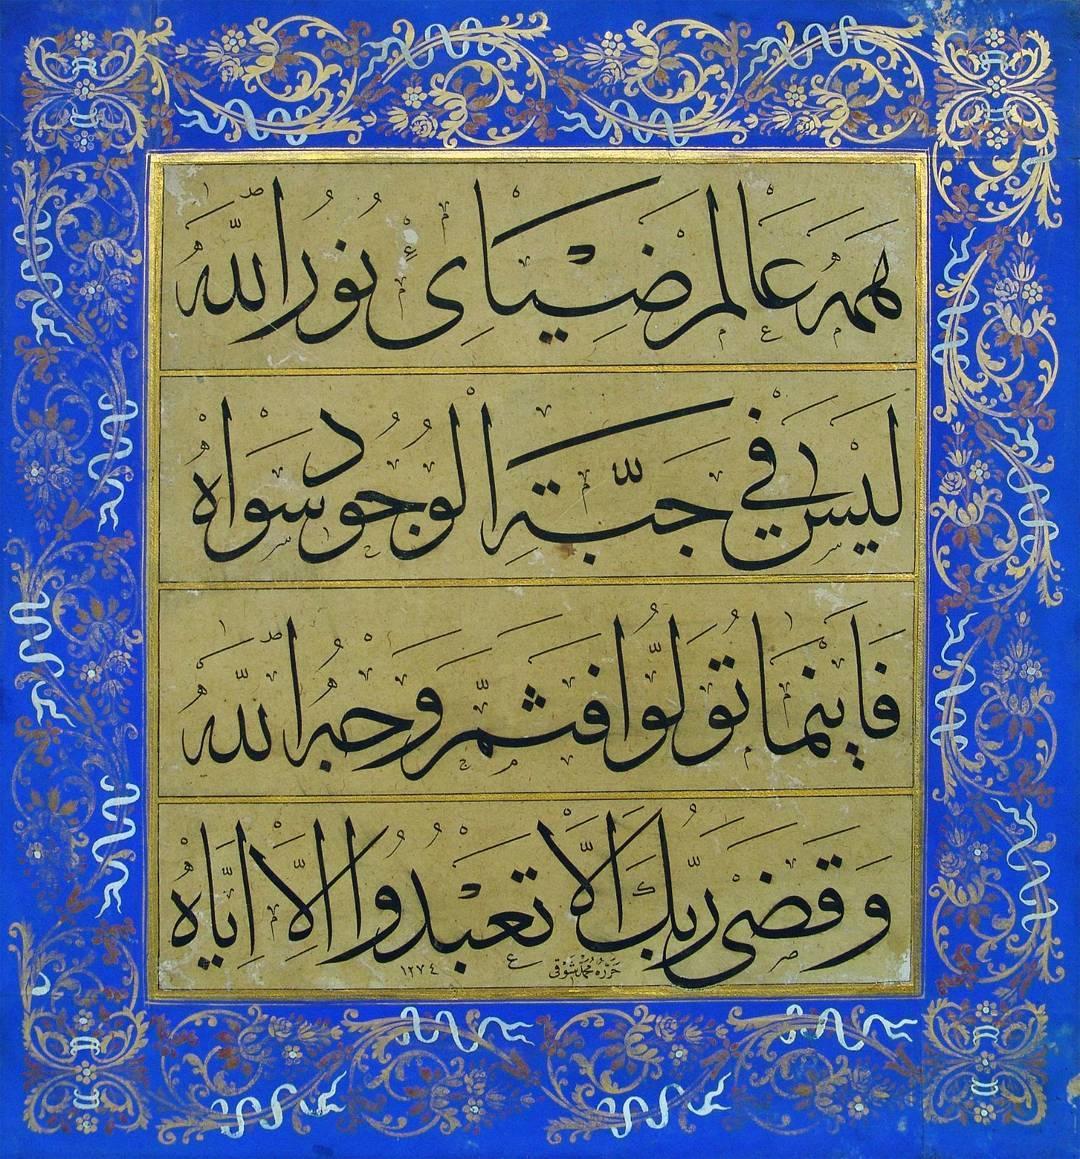 همه عالم ضیای نور الله
ليس في جبة الوجود سواه
فاينما تولوا فثم وجه الله
وقضى ربك الا تعبدوا الا اياه
حرره محمد شوقی ١٢٧٤